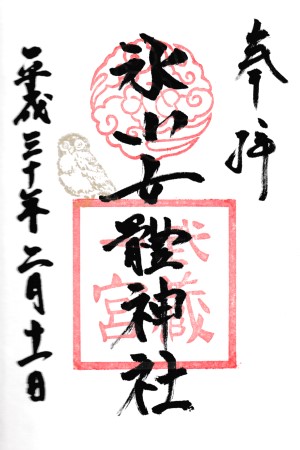 奉拝
氷川女體神社
武蔵
一宮
平成三十年二月十一日